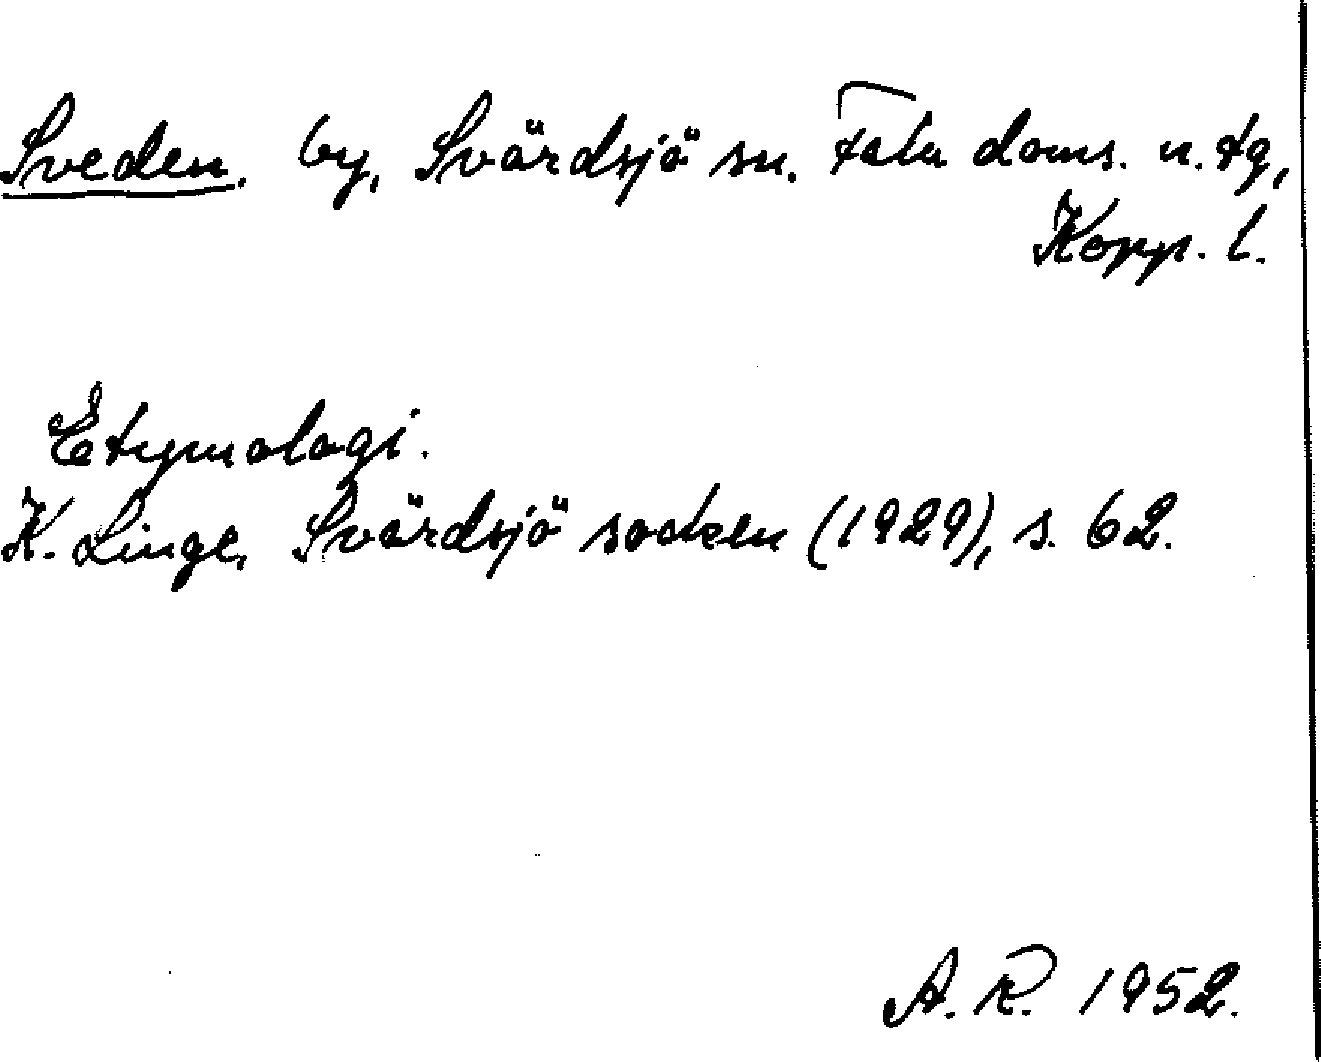 Sveden. by, Svärdsjö sn. Falu doms. n. tg,
Kopp. l.
Etymologi.
K. Linge, Svärdsjö socken (1929), s. 62.
A. R. 1952.